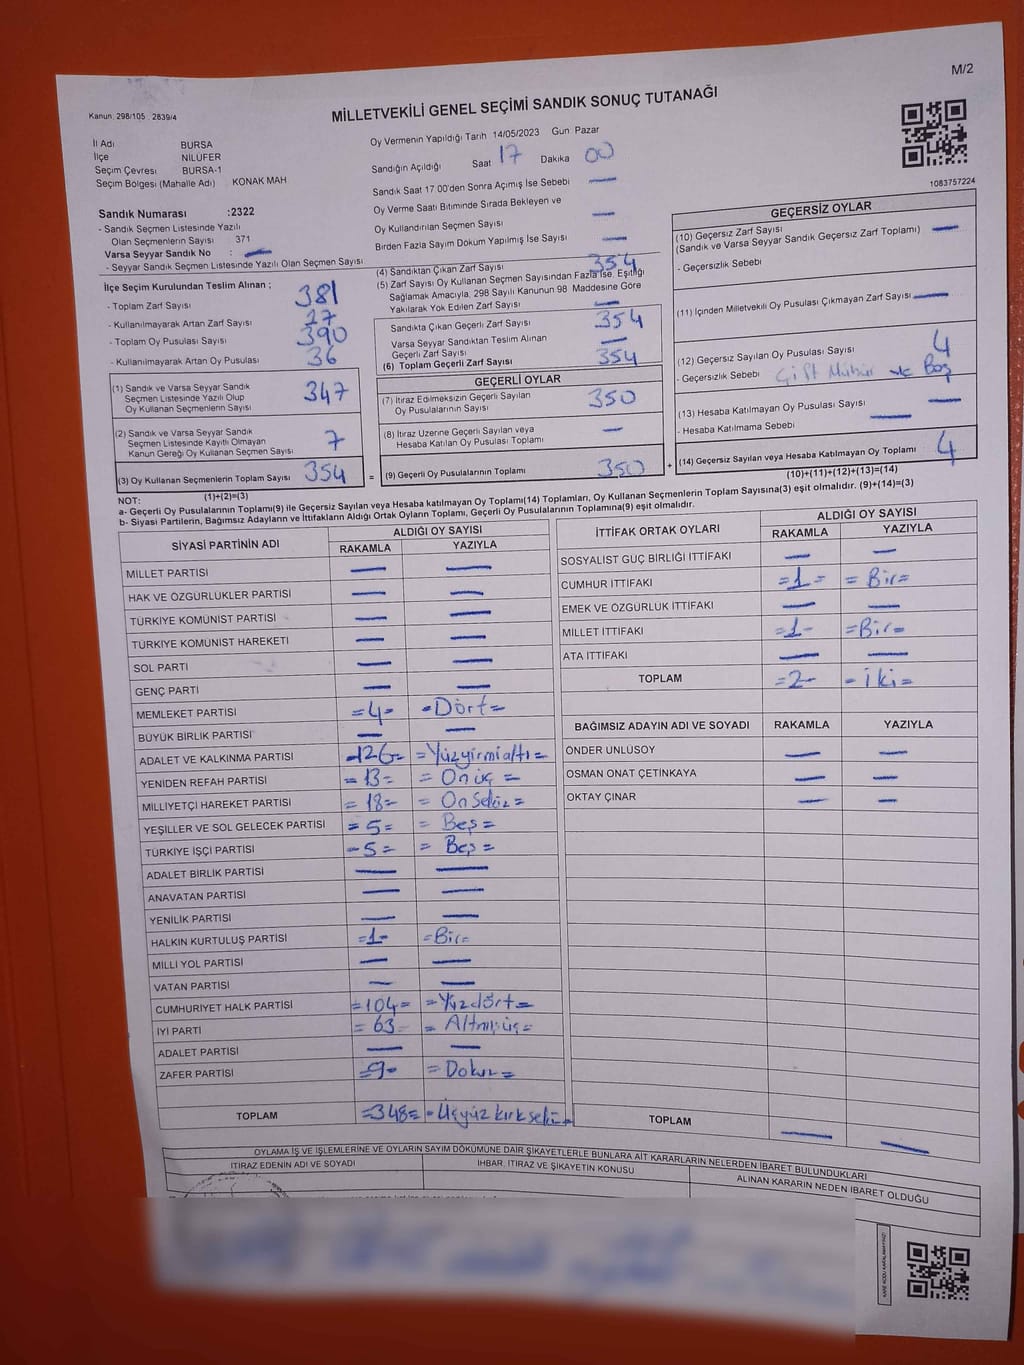 M/2
Kanun. 298/105 2839/4
MİLLETVEKİLİ GENEL SEÇİMİ SANDIK SONUÇ TUTANAĞI
İl Adı BURSA
İlçe NİLÜFER
Seçim Çevresi BURSA-1
Seçim Bölgesi (Mahalle Adı) KONAK MAH
Sandık Numarası :2322
- Sandık Seçmen Listesinde Yazılı
Olan Seçmenlerin Sayısı : 371
Varsa Seyyar Sandık No : —
- Seyyar Sandık Seçmen Listesinde Yazılı Olan Seçmen Sayısı
Oy Vermenin Yapıldığı Tarih 14/05/2023 Gün Pazar
Sandığın Açıldığı Saat 17 Dakika 00
Sandık Saat 17 00'den Sonra Açımış İse Sebebi —
Oy Verme Saati Bitiminde Sırada Bekleyen ve
Oy Kullandırılan Seçmen Sayısı —
Birden Fazla Sayım Döküm Yapılmış İse Sayısı —
1083757224
İlçe Seçim Kurulundan Teslim Alınan ;
- Toplam Zarf Sayısı 381
- Kullanılmayarak Artan Zarf Sayısı 27
- Toplam Oy Pusulası Sayısı 390
- Kullanılmayarak Artan Oy Pusulası 36
(1) Sandık ve Varsa Seyyar Sandık
Seçmen Listesinde Yazılı Olup
Oy Kullanan Seçmenlerin Sayısı 347
(2) Sandık ve Varsa Seyyar Sandık
Seçmen Listesinde Kayıtlı Olmayan
Kanun Gereği Oy Kullanan Seçmen Sayısı 7
(3) Oy Kullanan Seçmenlerin Toplam Sayısı 354
(1)+(2)=(3)
(4) Sandıktan Çıkan Zarf Sayısı 354
(5) Zarf Sayısı Oy Kullanan Seçmen Sayısından Fazla İse, Eşitliği
Sağlamak Amacıyla, 298 Sayılı Kanunun 98 Maddesine Göre
Yakılarak Yok Edilen Zarf Sayısı —
Sandıkta Çıkan Geçerli Zarf Sayısı 354
Varsa Seyyar Sandıktan Teslim Alınan
Geçerli Zarf Sayısı —
(6) Toplam Geçerli Zarf Sayısı 354
GEÇERLİ OYLAR
(7) İtiraz Edilmeksizin Geçerli Sayılan
Oy Pusulalarının Sayısı 350
(8) İtiraz Üzerine Geçerli Sayılan veya
Hesaba Katılan Oy Pusulası Toplamı —
= (9) Geçerli Oy Pusulalarının Toplamı 350 +
GEÇERSİZ OYLAR
(10) Geçersiz Zarf Sayısı —
(Sandık ve Varsa Seyyar Sandık Geçersiz Zarf Toplamı)
- Geçersizlik Sebebi
(11) İçinden Milletvekili Oy Pusulası Çıkmayan Zarf Sayısı —
(12) Geçersiz Sayılan Oy Pusulası Sayısı 4
- Geçersizlik Sebebi Çift Mühür ve Boş
(13) Hesaba Katılmayan Oy Pusulası Sayısı —
- Hesaba Katılmama Sebebi —
(14) Geçersiz Sayılan veya Hesaba Katılmayan Oy Toplamı 4
(10)+(11)+(12)+(13)=(14)
NOT:
a- Geçerli Oy Pusulalarının Toplamı(9) ile Geçersiz Sayılan veya Hesaba katılmayan Oy Toplamı(14) Toplamları, Oy Kullanan Seçmenlerin Toplam Sayısına(3) eşit olmalıdır. (9)+(14)=(3)
b- Siyasi Partilerin, Bağımsız Adayların ve İttifakların Aldığı Ortak Oyların Toplamı, Geçerli Oy Pusulalarının Toplamına(9) eşit olmalıdır.
SİYASİ PARTİNİN ADI ALDIĞI OY SAYISI
RAKAMLA YAZIYLA
MİLLET PARTİSİ — —
HAK VE ÖZGÜRLÜKLER PARTİSİ — —
TÜRKİYE KOMÜNİST PARTİSİ — —
TÜRKİYE KOMÜNİST HAREKETİ — —
SOL PARTİ — —
GENÇ PARTİ — —
MEMLEKET PARTİSİ =4= =Dört=
BÜYÜK BİRLİK PARTİSİ — —
ADALET VE KALKINMA PARTİSİ =126= =Yüzyirmialtı=
YENİDEN REFAH PARTİSİ =13= =Onüç=
MİLLİYETÇİ HAREKET PARTİSİ =18= =Onsekiz=
YEŞİLLER VE SOL GELECEK PARTİSİ =5= =Beş=
TÜRKİYE İŞÇİ PARTİSİ =5= =Beş=
ADALET BİRLİK PARTİSİ — —
ANAVATAN PARTİSİ — —
YENİLİK PARTİSİ — —
HALKIN KURTULUŞ PARTİSİ =1= =Bir=
MİLLİ YOL PARTİSİ — —
VATAN PARTİSİ — —
CUMHURİYET HALK PARTİSİ =104= =Yüzdört=
İYİ PARTİ =63= =Altmışüç=
ADALET PARTİSİ — —
ZAFER PARTİSİ =9= =Dokuz=
TOPLAM =348= =Üçyüz kırksekiz=
İTTİFAK ORTAK OYLARI ALDIĞI OY SAYISI
RAKAMLA YAZIYLA
SOSYALİST GÜÇ BİRLİĞİ İTTİFAKI — —
CUMHUR İTTİFAKI =1= =Bir=
EMEK VE ÖZGÜRLÜK İTTİFAKI — —
MİLLET İTTİFAKI =1= =Bir=
ATA İTTİFAKI — —
TOPLAM =2= =İki=
BAĞIMSIZ ADAYIN ADI VE SOYADI RAKAMLA YAZIYLA
ÖNDER ÜNLÜSOY — —
OSMAN ONAT ÇETİNKAYA — —
OKTAY ÇINAR — —
TOPLAM — —
OYLAMA İŞ VE İŞLEMLERİNE VE OYLARIN SAYIM DÖKÜMÜNE DAİR ŞİKAYETLERLE BUNLARA AİT KARARLARIN NELERDEN İBARET BULUNDUKLARI
İTİRAZ EDENİN ADI VE SOYADI İHBAR, İTİRAZ VE ŞİKAYETİN KONUSU ALINAN KARARIN NEDEN İBARET OLDUĞU